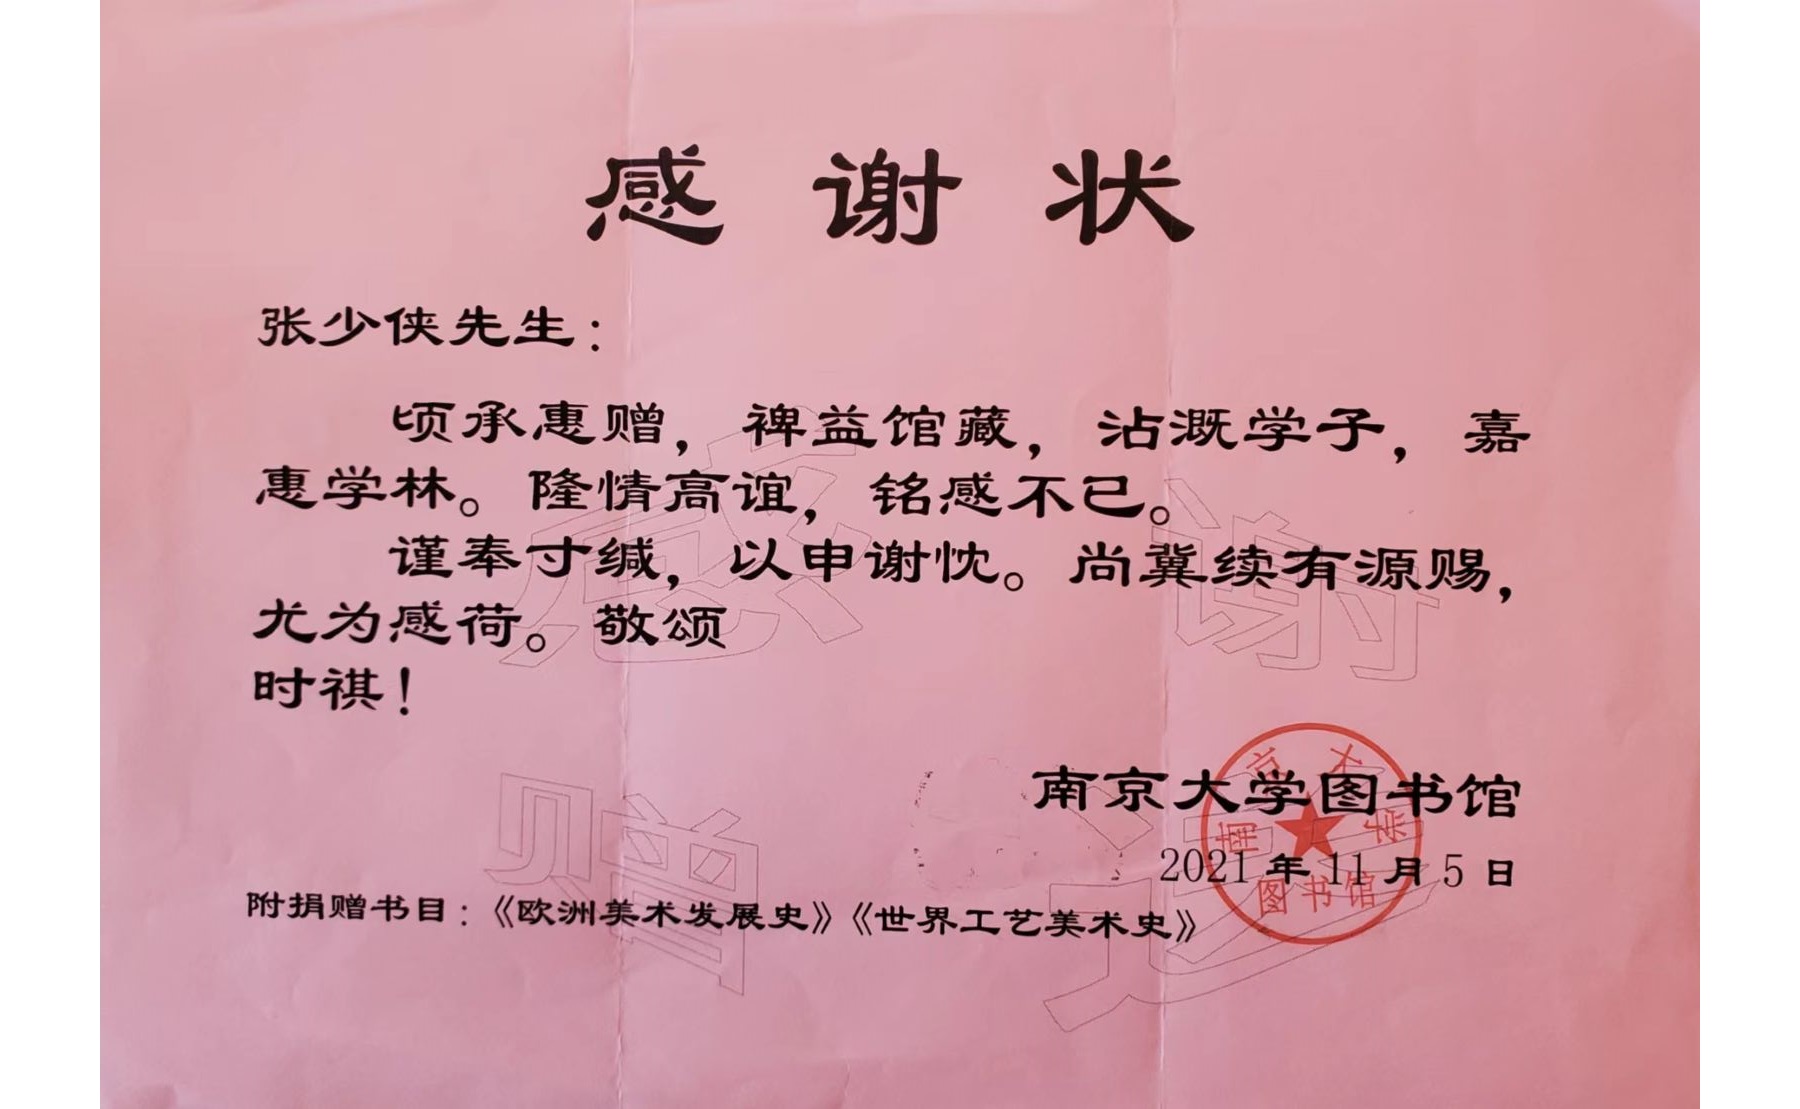 感谢状
张少侠先生：
顷承惠赠，裨益馆藏，沾溉学子，嘉
惠学林。隆情高谊，铭感不已。
谨奉寸缄，以申谢忱。尚冀续有源赐，
尤为感荷。敬颂
时祺！
南京大学图书馆
2021年11月5日
附捐赠书目：《欧洲美术发展史》《世界工艺美术史》
感谢
赠
南京大学
图书馆